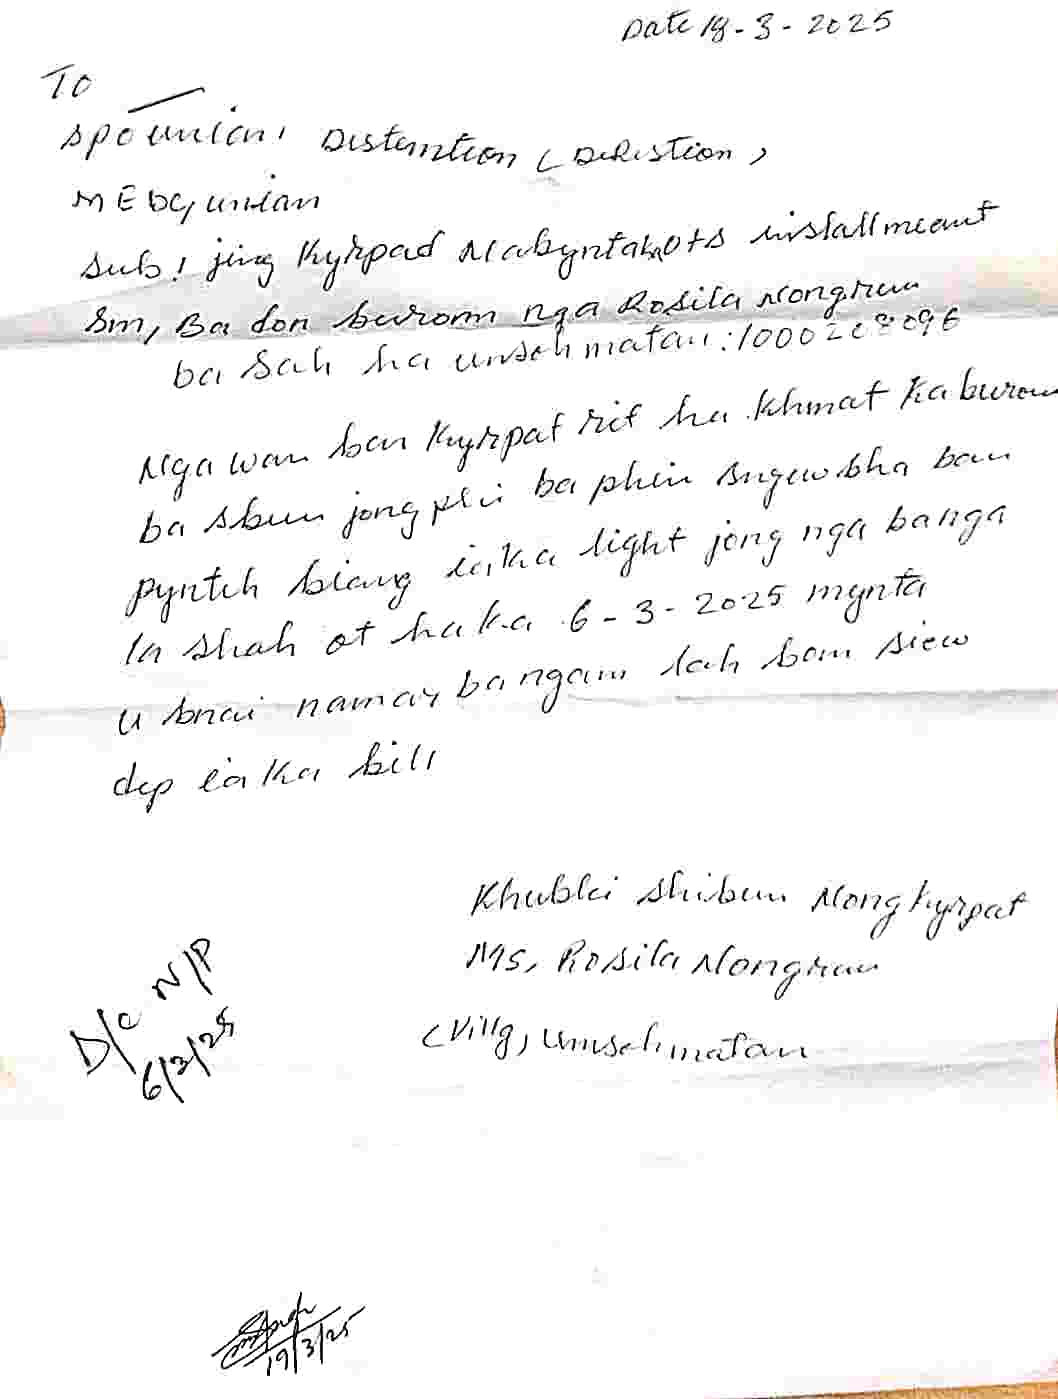 Date 18-3-2025
To
SPO union, Distemtion (Delistion)
MEDC, union
Sub: jing Kyrpad Nabynta ka OTS installmeant
Sm, Ba don burom nga Rosila Nongrum
ba Sah ha umsohmatan: 1000208096
Nga wan ban Kyrpat rit ha Khmat Ka burom
ba sbun jong phi ba phin sngewbha ban
pynteh biang ia ka light jong nga ba nga
la shah ot ha ka 6-3-2025 mynta
u bnai namar ba ngam lah ban siew
dep ia ka bill
Khublei shibun Nongkyrpat
Ms, Rosila Nongrum
(Villg, Umsohmatan
D/C N/P
6/3/25
19/3/25